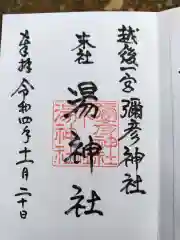 越後一宮 彌彦神社
末社
湯神社
奉拝 令和四年十一月二十日